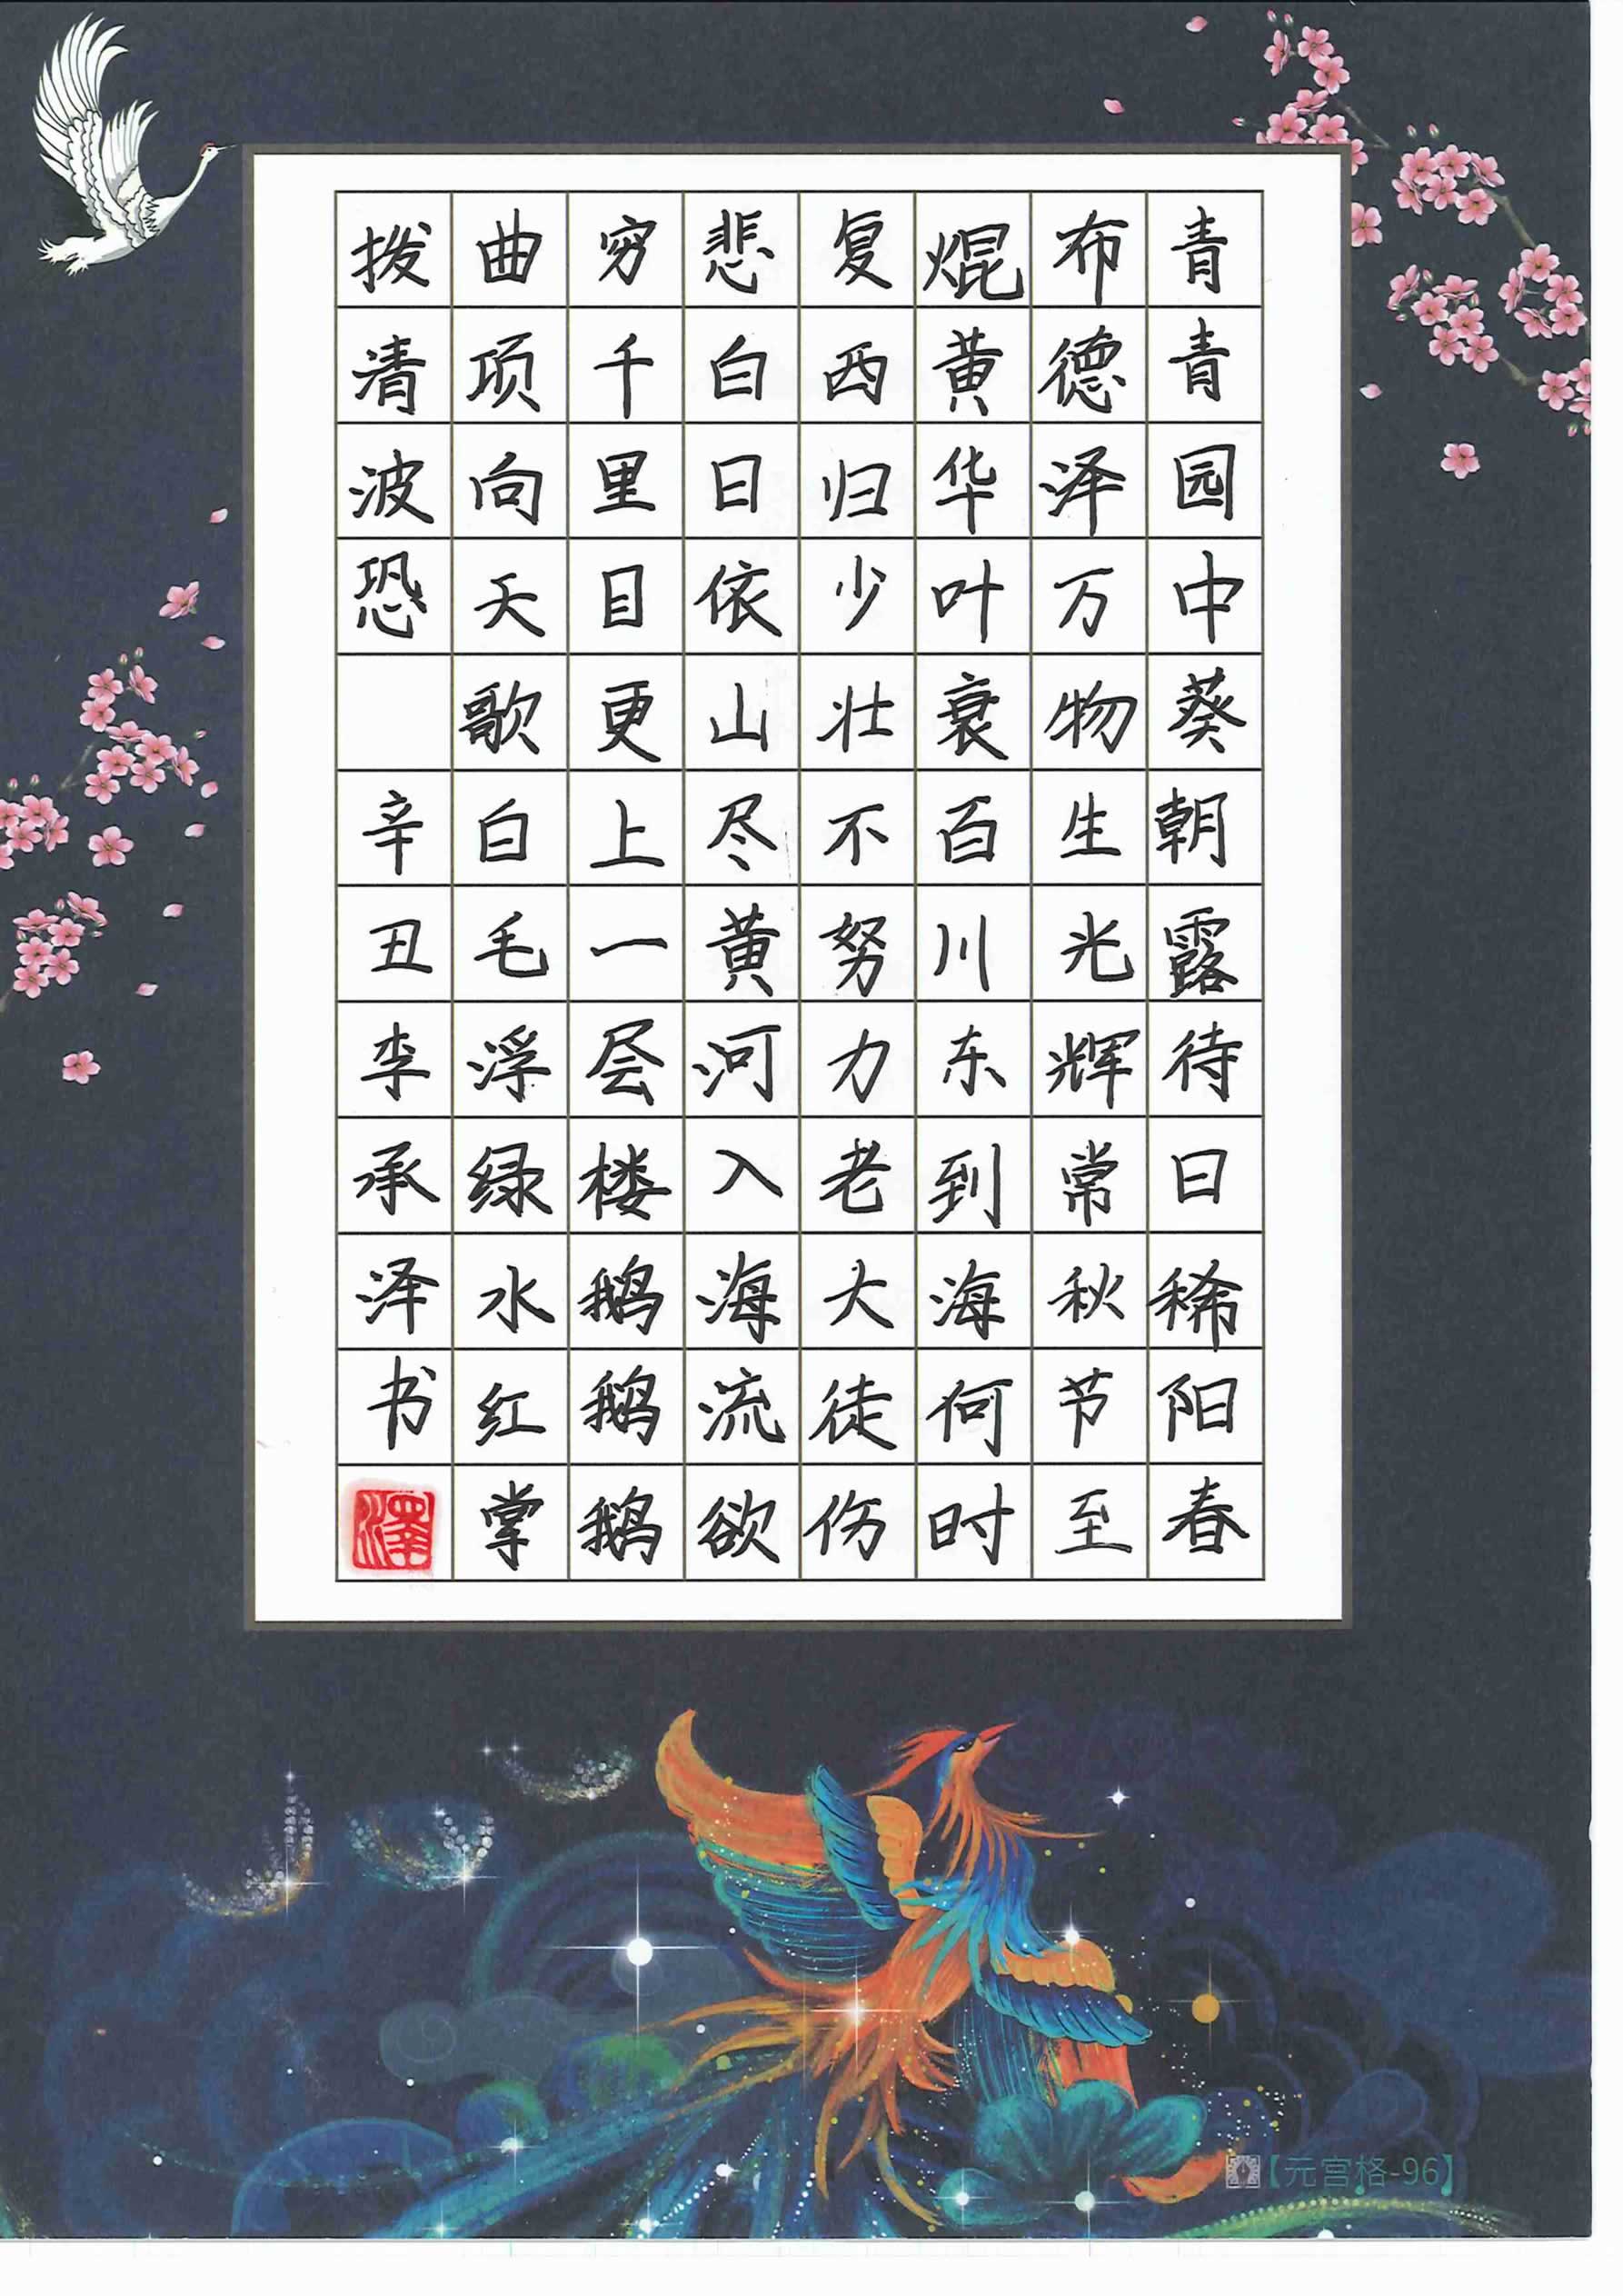 青青园中葵朝露待日稀阳春
布德泽万物生光辉常秋节至
焜黄华叶衰百川东到海何时
复西归少壮不努力老大徒伤
悲白日依山尽黄河入海流欲
穷千里目更上一层楼鹅鹅鹅
曲项向天歌白毛浮绿水红掌
拨清波恐 辛丑李承泽书
澤
【元宫格-96】